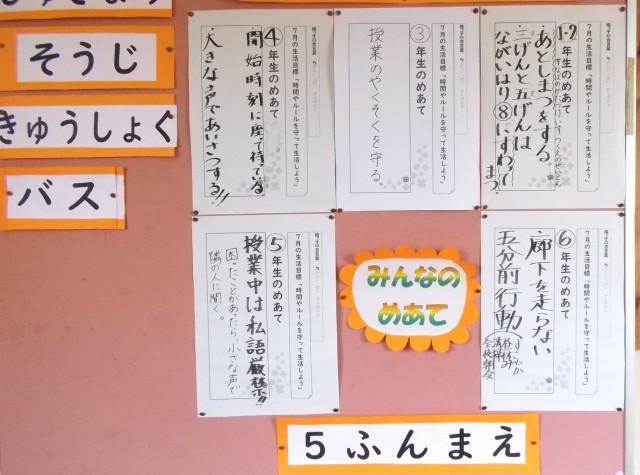 そうじ
きゅうしょく
バス
1・2年生のめあて
7月の生活目標「時間やルールを守って生活しよう」
・あとしまつをする
・三げんと五げんは
ながいはり⑧にすわって
まつ。
③年生のめあて
7月の生活目標「時間やルールを守って生活しよう」
授業のやくそくを守る。
④年生のめあて
7月の生活目標「時間やルールを守って生活しよう」
・開始時刻に座って待っている
・大きな声であいさつする!!
⑤年生のめあて
7月の生活目標「時間やルールを守って生活しよう」
授業中は私語厳禁!!
困ったことがあったら、小さな声で
隣の人に聞く。
みんなの
めあて
⑥年生のめあて
7月の生活目標「時間やルールを守って生活しよう」
・廊下を走らない
・五分前行動
清掃
全校朝会
5ふんまえ